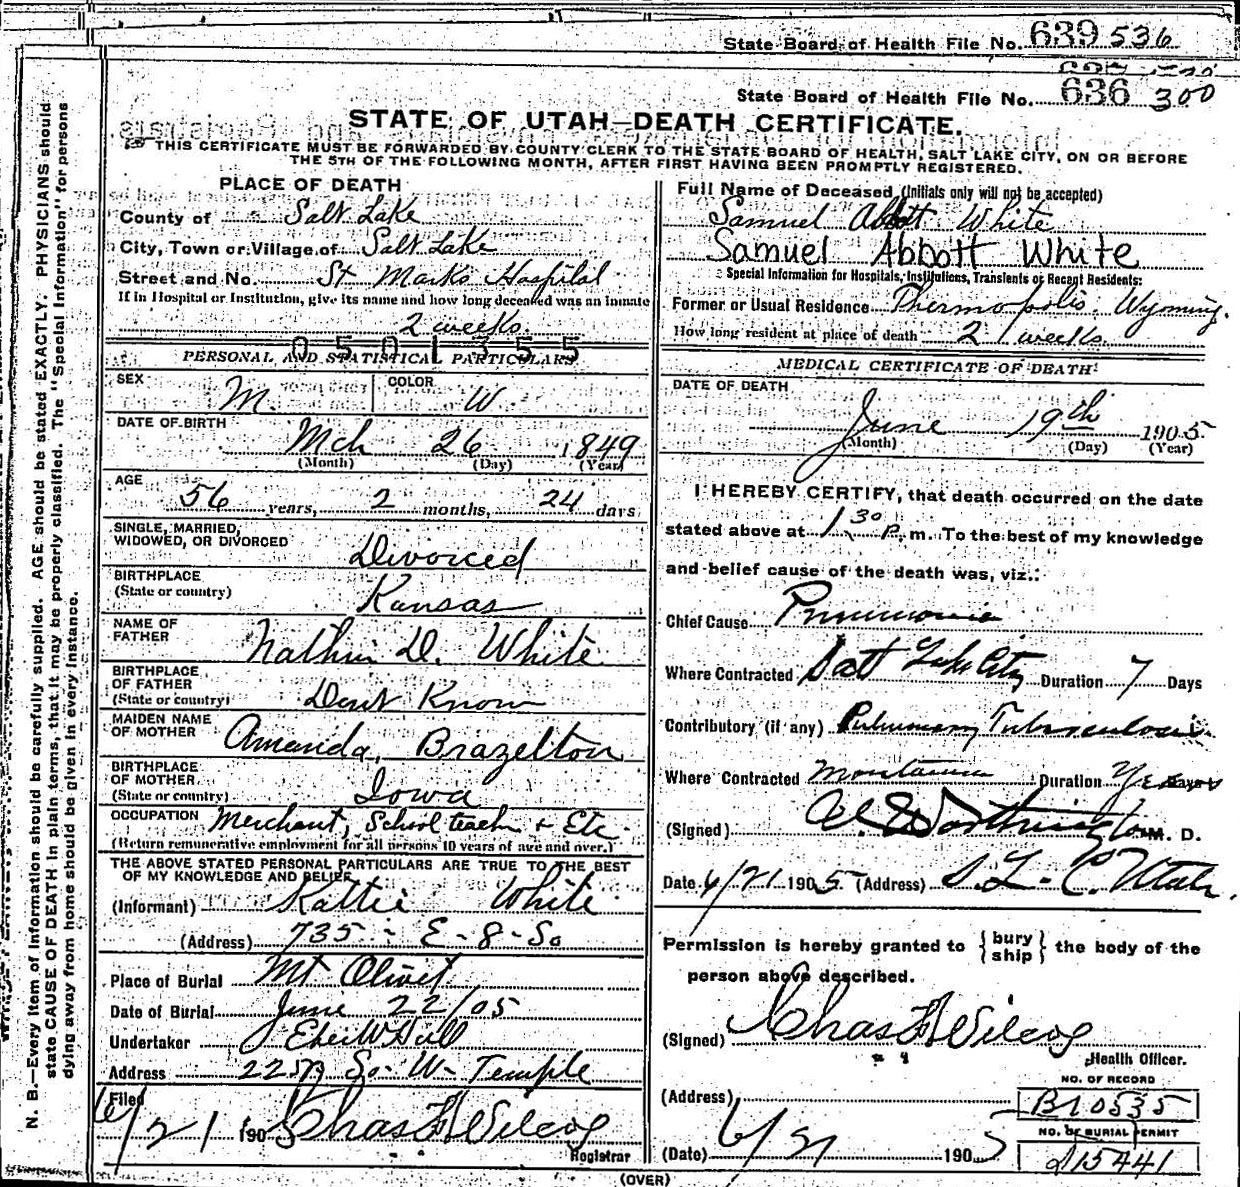 State Board of Health File No. 639 536
State Board of Health File No. 636 300
STATE OF UTAH—DEATH CERTIFICATE.
THIS CERTIFICATE MUST BE FORWARDED BY COUNTY CLERK TO THE STATE BOARD OF HEALTH, SALT LAKE CITY, ON OR BEFORE
THE 5TH OF THE FOLLOWING MONTH, AFTER FIRST HAVING BEEN PROMPTLY REGISTERED.
N. B.—Every item of information should be carefully supplied. AGE should be stated EXACTLY. PHYSICIANS should
state CAUSE OF DEATH in plain terms, that it may be properly classified. The "Special Information" for persons
dying away from home should be given in every instance.
PLACE OF DEATH
County of Salt Lake
City, Town or Village of Salt Lake
Street and No. St Marks Hospital
If in Hospital or Institution, give its name and how long deceased was an inmate
2 weeks.
0501355
PERSONAL AND STATISTICAL PARTICULARS
SEX M. COLOR W.
DATE OF BIRTH
Mch 26 1849
(Month) (Day) (Year)
AGE
56 years, 2 months, 24 days
SINGLE, MARRIED,
WIDOWED, OR DIVORCED Divorced
BIRTHPLACE
(State or country) Kansas
NAME OF
FATHER Nathin D. White
BIRTHPLACE
OF FATHER
(State or country) Dont Know
MAIDEN NAME
OF MOTHER Amanda Brazelton
BIRTHPLACE
OF MOTHER
(State or country) Iowa
OCCUPATION Merchant, School teach + Etc.
(Return remunerative employment for all persons 10 years of age and over.)
THE ABOVE STATED PERSONAL PARTICULARS ARE TRUE TO THE BEST
OF MY KNOWLEDGE AND BELIEF
(Informant) Kattie White
(Address) 735 - E - 8 - So
Place of Burial Mt Olivet
Date of Burial June 22/05
Undertaker Eber W Hall
Address So. W. Temple
Filed
6/21 1905 Chas F Wilcox
Registrar
Full Name of Deceased (Initials only will not be accepted)
Samuel Abbott White
Samuel Abbott White
Special Information for Hospitals, Institutions, Transients or Recent Residents:
Former or Usual Residence Thermopolis. Wyoming.
How long resident at place of death 2 weeks
MEDICAL CERTIFICATE OF DEATH
DATE OF DEATH
June 19th 1905
(Month) (Day) (Year)
I HEREBY CERTIFY, that death occurred on the date
stated above at 1 30 P. m. To the best of my knowledge
and belief cause of the death was, viz.:
Chief Cause Pneumonia
Where Contracted Salt Lake City Duration 7 Days
Contributory (if any) Pulmonary Tuberculosis
Where Contracted Montana Duration Years Days
(Signed) Worthington M. D.
Date 6/21 1905 (Address) S. L. C. Utah.
Permission is hereby granted to {bury ship} the body of the
person above described.
(Signed) Chas F Wilcox
Health Officer.
NO. OF RECORD
(Address) B10535
NO. OF BURIAL PERMIT
(Date) 6/21 1905 15441
(OVER)